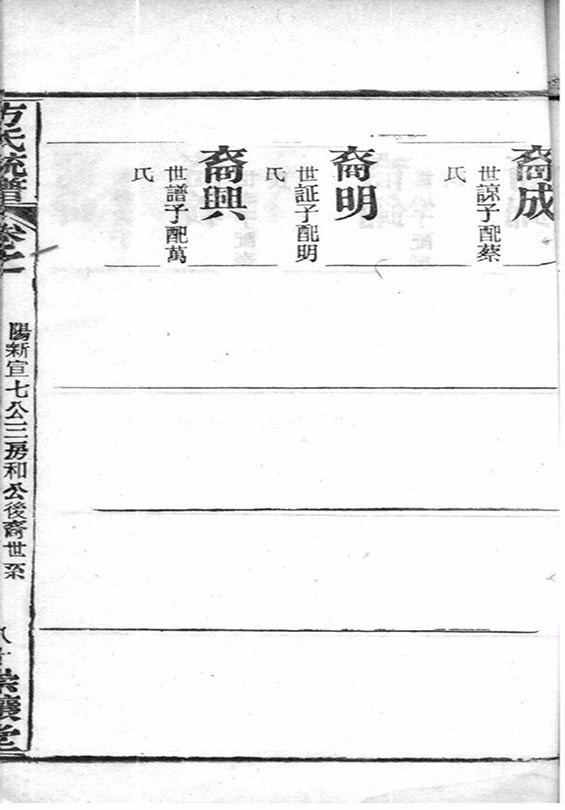 裔成
世諒子配蔡
氏
裔明
世証子配明
氏
裔興
世譜子配萬
氏
方氏統譜
卷之一
陽新宣七公三房和公後裔世系
八十